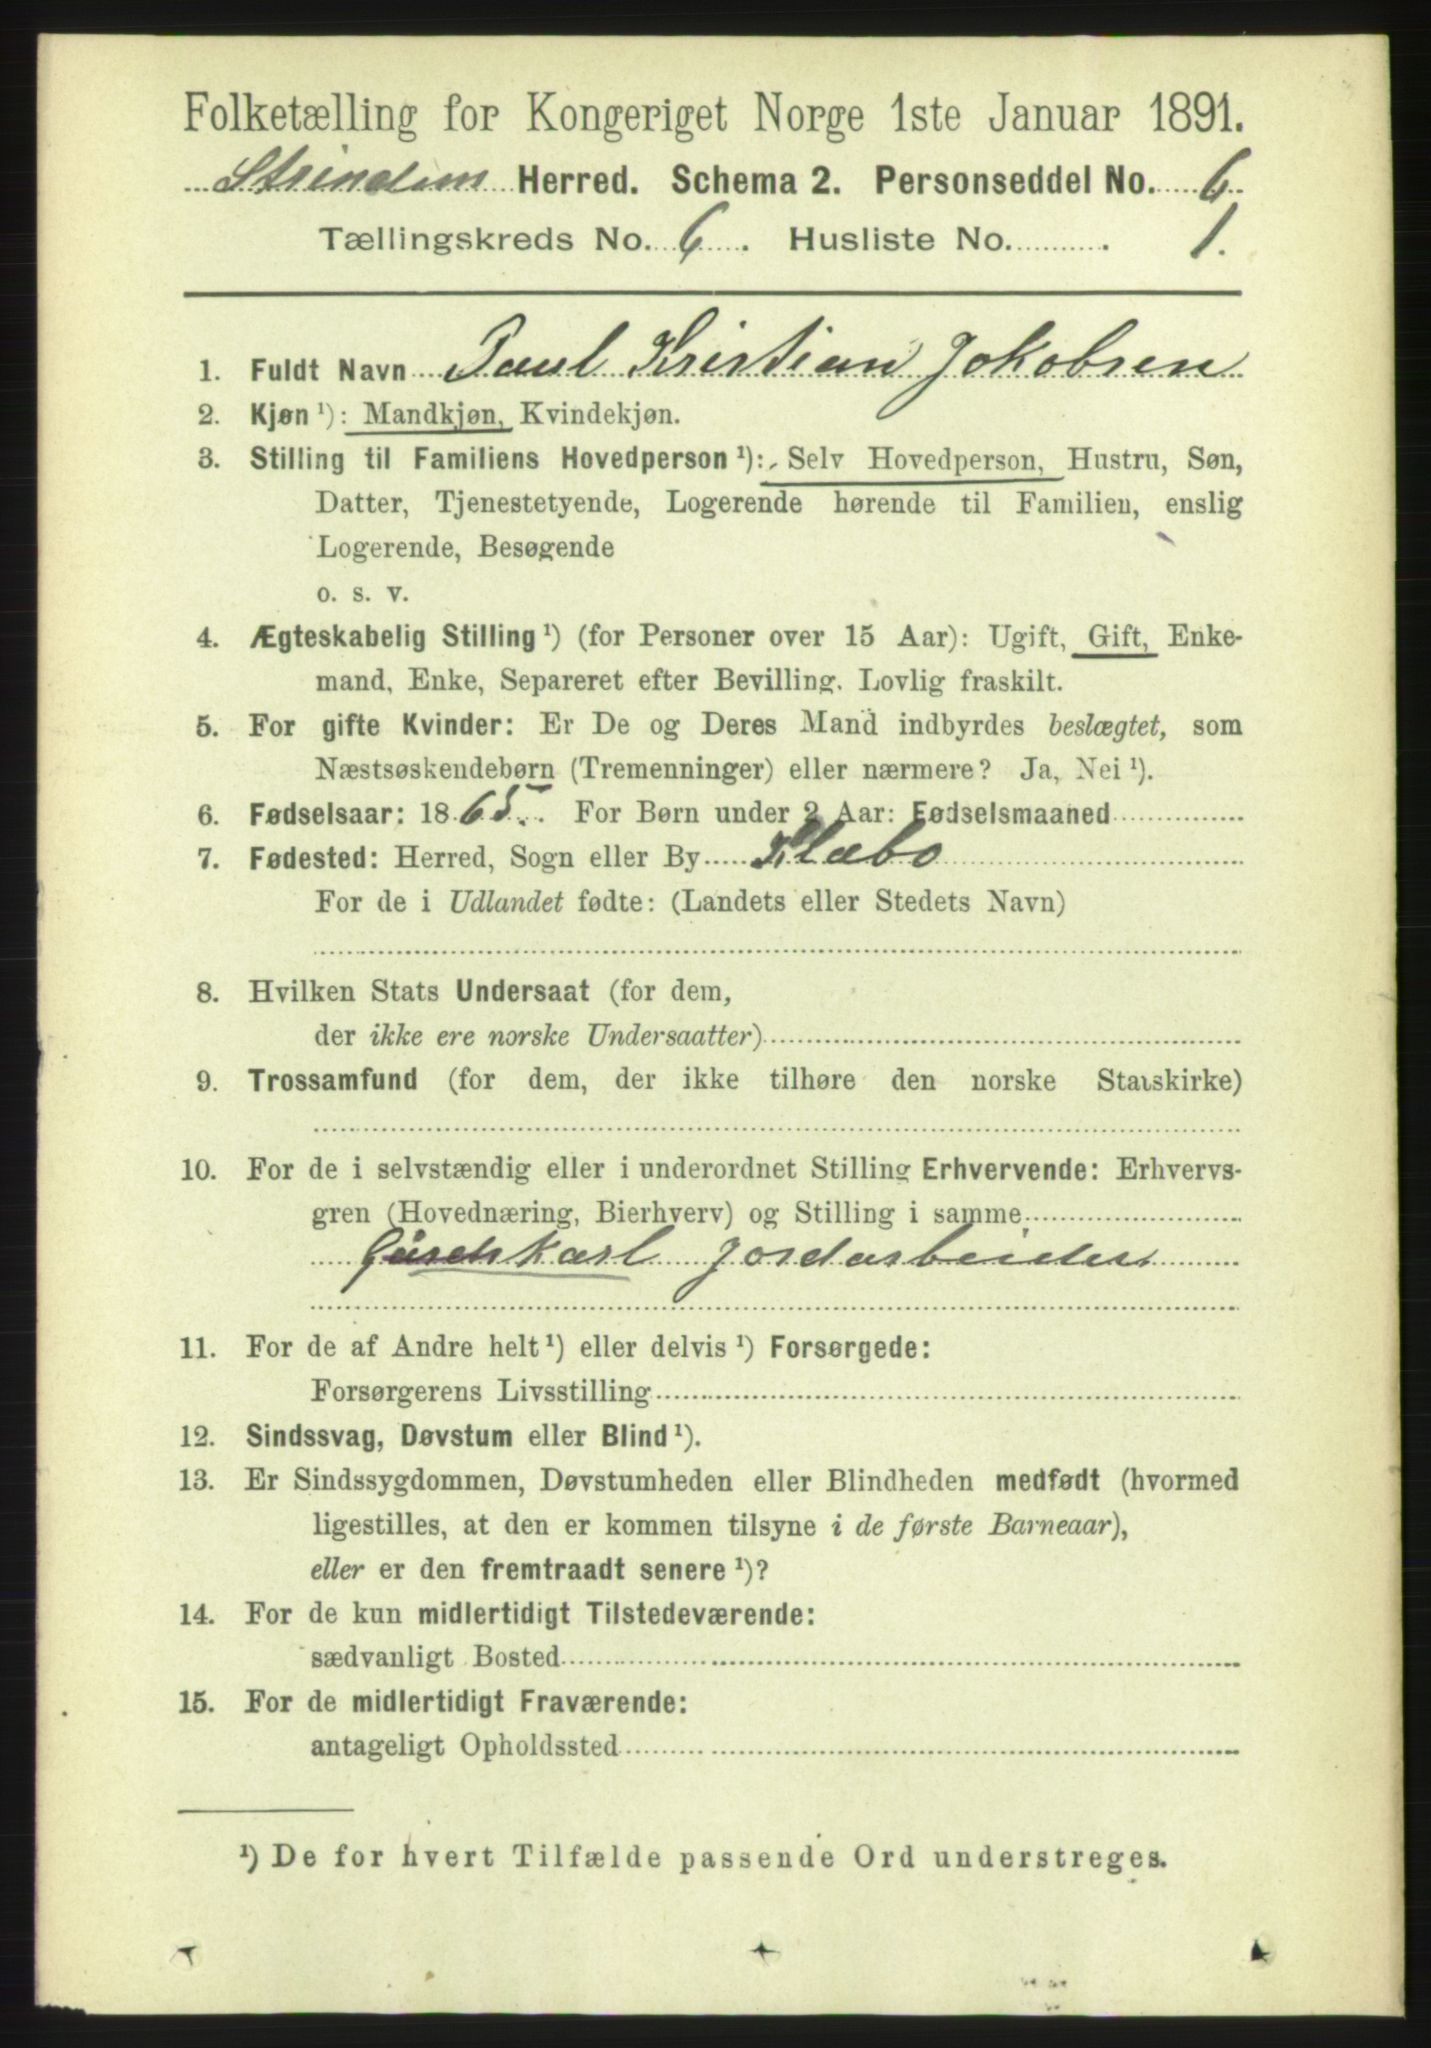 Folketælling for Kongeriget Norge 1ste Januar 1891.
Strinden Herred. Schema 2. Personseddel No. 6
Tællingskreds No. 6. Husliste No. 1.
1. Fuldt Navn Paul Kristian Jokobsen
2. Kjøn ¹): Mandkjøn, Kvindekjøn.
3. Stilling til Familiens Hovedperson ¹): Selv Hovedperson, Hustru, Søn,
Datter, Tjenestetyende, Logerende hørende til Familien, enslig
Logerende, Besøgende
o. s. v.
4. Ægteskabelig Stilling ¹) (for Personer over 15 Aar): Ugift, Gift, Enke-
mand, Enke, Separeret efter Bevilling. Lovlig fraskilt.
5. For gifte Kvinder: Er De og Deres Mand indbyrdes beslægtet, som
Næstsøskendebørn (Tremenninger) eller nærmere? Ja, Nei ¹).
6. Fødselsaar: 1865. For Børn under 2 Aar: Fødselsmaaned
7. Fødested: Herred, Sogn eller By Klæbo
For de i Udlandet fødte: (Landets eller Stedets Navn)
8. Hvilken Stats Undersaat (for dem,
der ikke ere norske Undersaatter)
9. Trossamfund (for dem, der ikke tilhøre den norske Statskirke)
10. For de i selvstændig eller i underordnet Stilling Erhvervende: Erhvervs-
gren (Hovednæring, Bierhverv) og Stilling i samme
Gårdskarl Jordarbeider
11. For de af Andre helt ¹) eller delvis ¹) Forsørgede:
Forsørgerens Livsstilling
12. Sindssvag, Døvstum eller Blind ¹).
13. Er Sindssygdommen, Døvstumheden eller Blindheden medfødt (hvormed
ligestilles, at den er kommen tilsyne i de første Barneaar),
eller er den fremtraadt senere ¹)?
14. For de kun midlertidigt Tilstedeværende:
sædvanligt Bosted
15. For de midlertidigt Fraværende:
antageligt Opholdssted
¹) De for hvert Tilfælde passende Ord understreges.